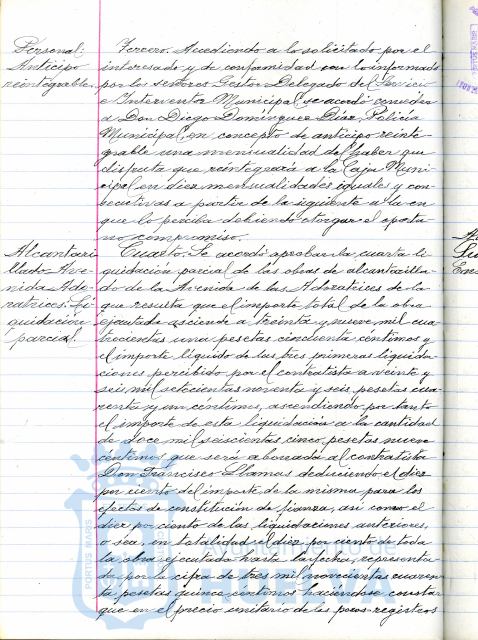 Personal:
Anticipo
reintegrable.
Tercero. Accediendo a lo solicitado por el
interesado y de conformidad con lo informado
por los señores Gestor Delegado del Servicio
e Interventor Municipal, se acordó conceder
a Don Diego Domínguez Díaz, Policía
Municipal, en concepto de anticipo reinte-
grable una mensualidad del haber que
disfruta que reintegrará a la Caja Muni-
cipal en diez mensualidades iguales y con-
secutivas a partir de la siguiente a la en
que lo perciba debiendo otorgar el oportu-
no compromiso.
Alcantari-
llado Ave-
nida Ado-
ratrices. Li-
quidación
parcial.
Cuarto. Se acordó aprobar la cuarta li-
quidación parcial de las obras de alcantarilla-
do de la Avenida de las Adoratrices de la
que resulta que el importe total de la obra
ejecutada asciende a treinta y nueve mil cua-
trocientas una pesetas cincuenta céntimos y
el importe líquido de las tres primeras liquida-
ciones percibido por el contratista a veinte y
seis mil setecientas noventa y seis pesetas cua-
renta y un céntimos, ascendiendo por tanto
el importe de esta liquidación a la cantidad
de doce mil seiscientas cinco pesetas nueve
céntimos que será abonado al contratista
Don Francisco Llamas deduciendo el diez
por ciento del importe de la misma para los
efectos de constitución de fianza, así como el
diez por ciento de las liquidaciones anteriores,
o sea en totalidad el diez por ciento de toda
la obra ejecutada hasta la fecha, representa-
da por la cifra de tres mil novecientas cuaren-
ta pesetas quince céntimos haciéndose constar
que en el precio unitario de los pozos-registros
PORTUS MARIS
Ayuntamiento de